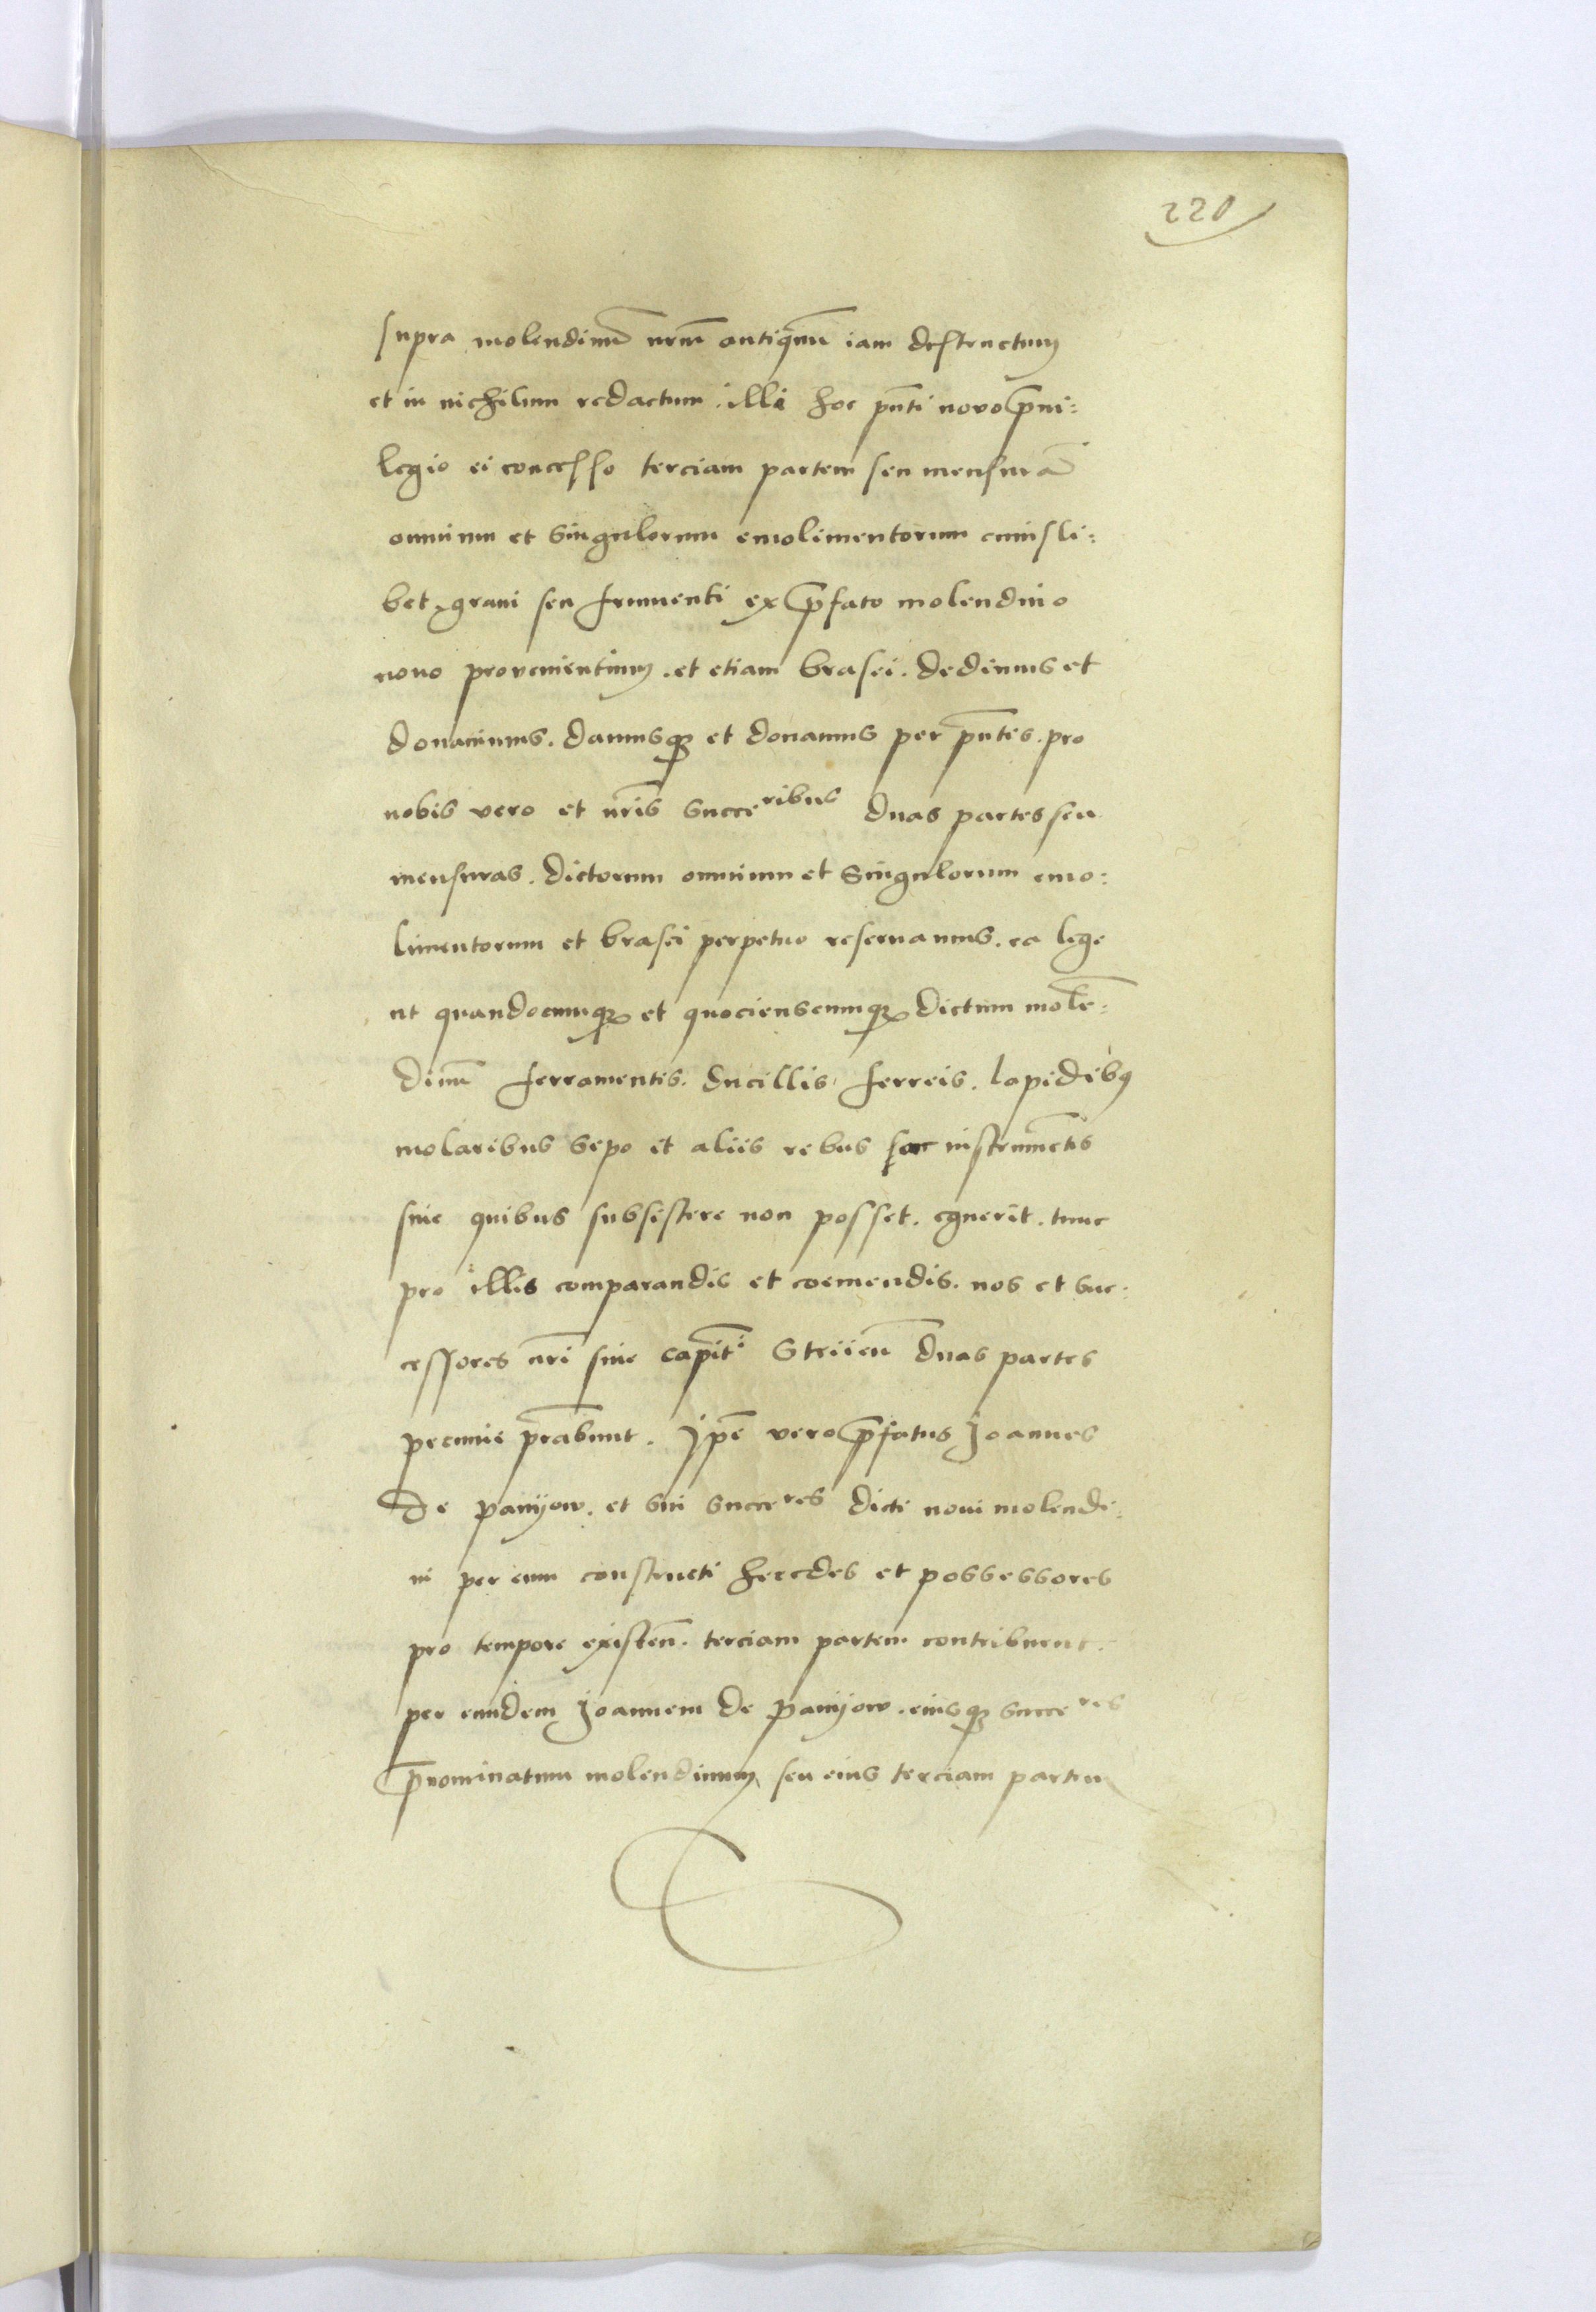 220
supra molendinu͞ nrm͞ antiqu͞m iam destructum
et in nichilum redactum . illi hoc pn͞ti novo p͞ui:
legio ei concesso terciam partem seu mensura͞
omnium et singulorum emolimentorum cuiusli:
bet grani seu frumenti ex p͞fato molendino
nouo provenientium . et etiam brasei . dedimus et
donauimus . damusq₃ et donamus per pn͞tes . pro
nobis vero et nr͞is succeribus duas partes seu
mensuras . dictorum omnium et singulorum emo:
limentorum et brasei perpetuo reseruamus . ea lege
ut quandocumq₃ et quocienscumq₃ dictum mole͞:
dinu͞ ferramentis . ducillis ferreis . lapidibꝰ
molaribus sepo et aliis rebus instrume͞tis
sine quibus subsistere non posset . eguerit . tunc
pro illis comparandis et coemendis . nos et suc:
cessores nr͞i siue capit͞i Strijen͞ duas partes
pecunie pr͞abunt . Jpe͞ vero p͞fatus Joannes
de panijow . et sui succeres dicti noui molendi:
ni per eum constructi heredes et possessores
pro tempore existen͞ . terciam partem contribuent .
per eundem Joannem de panijow . eiusq₃ succeres
p͞nominatum molendinum seu eius terciam partem